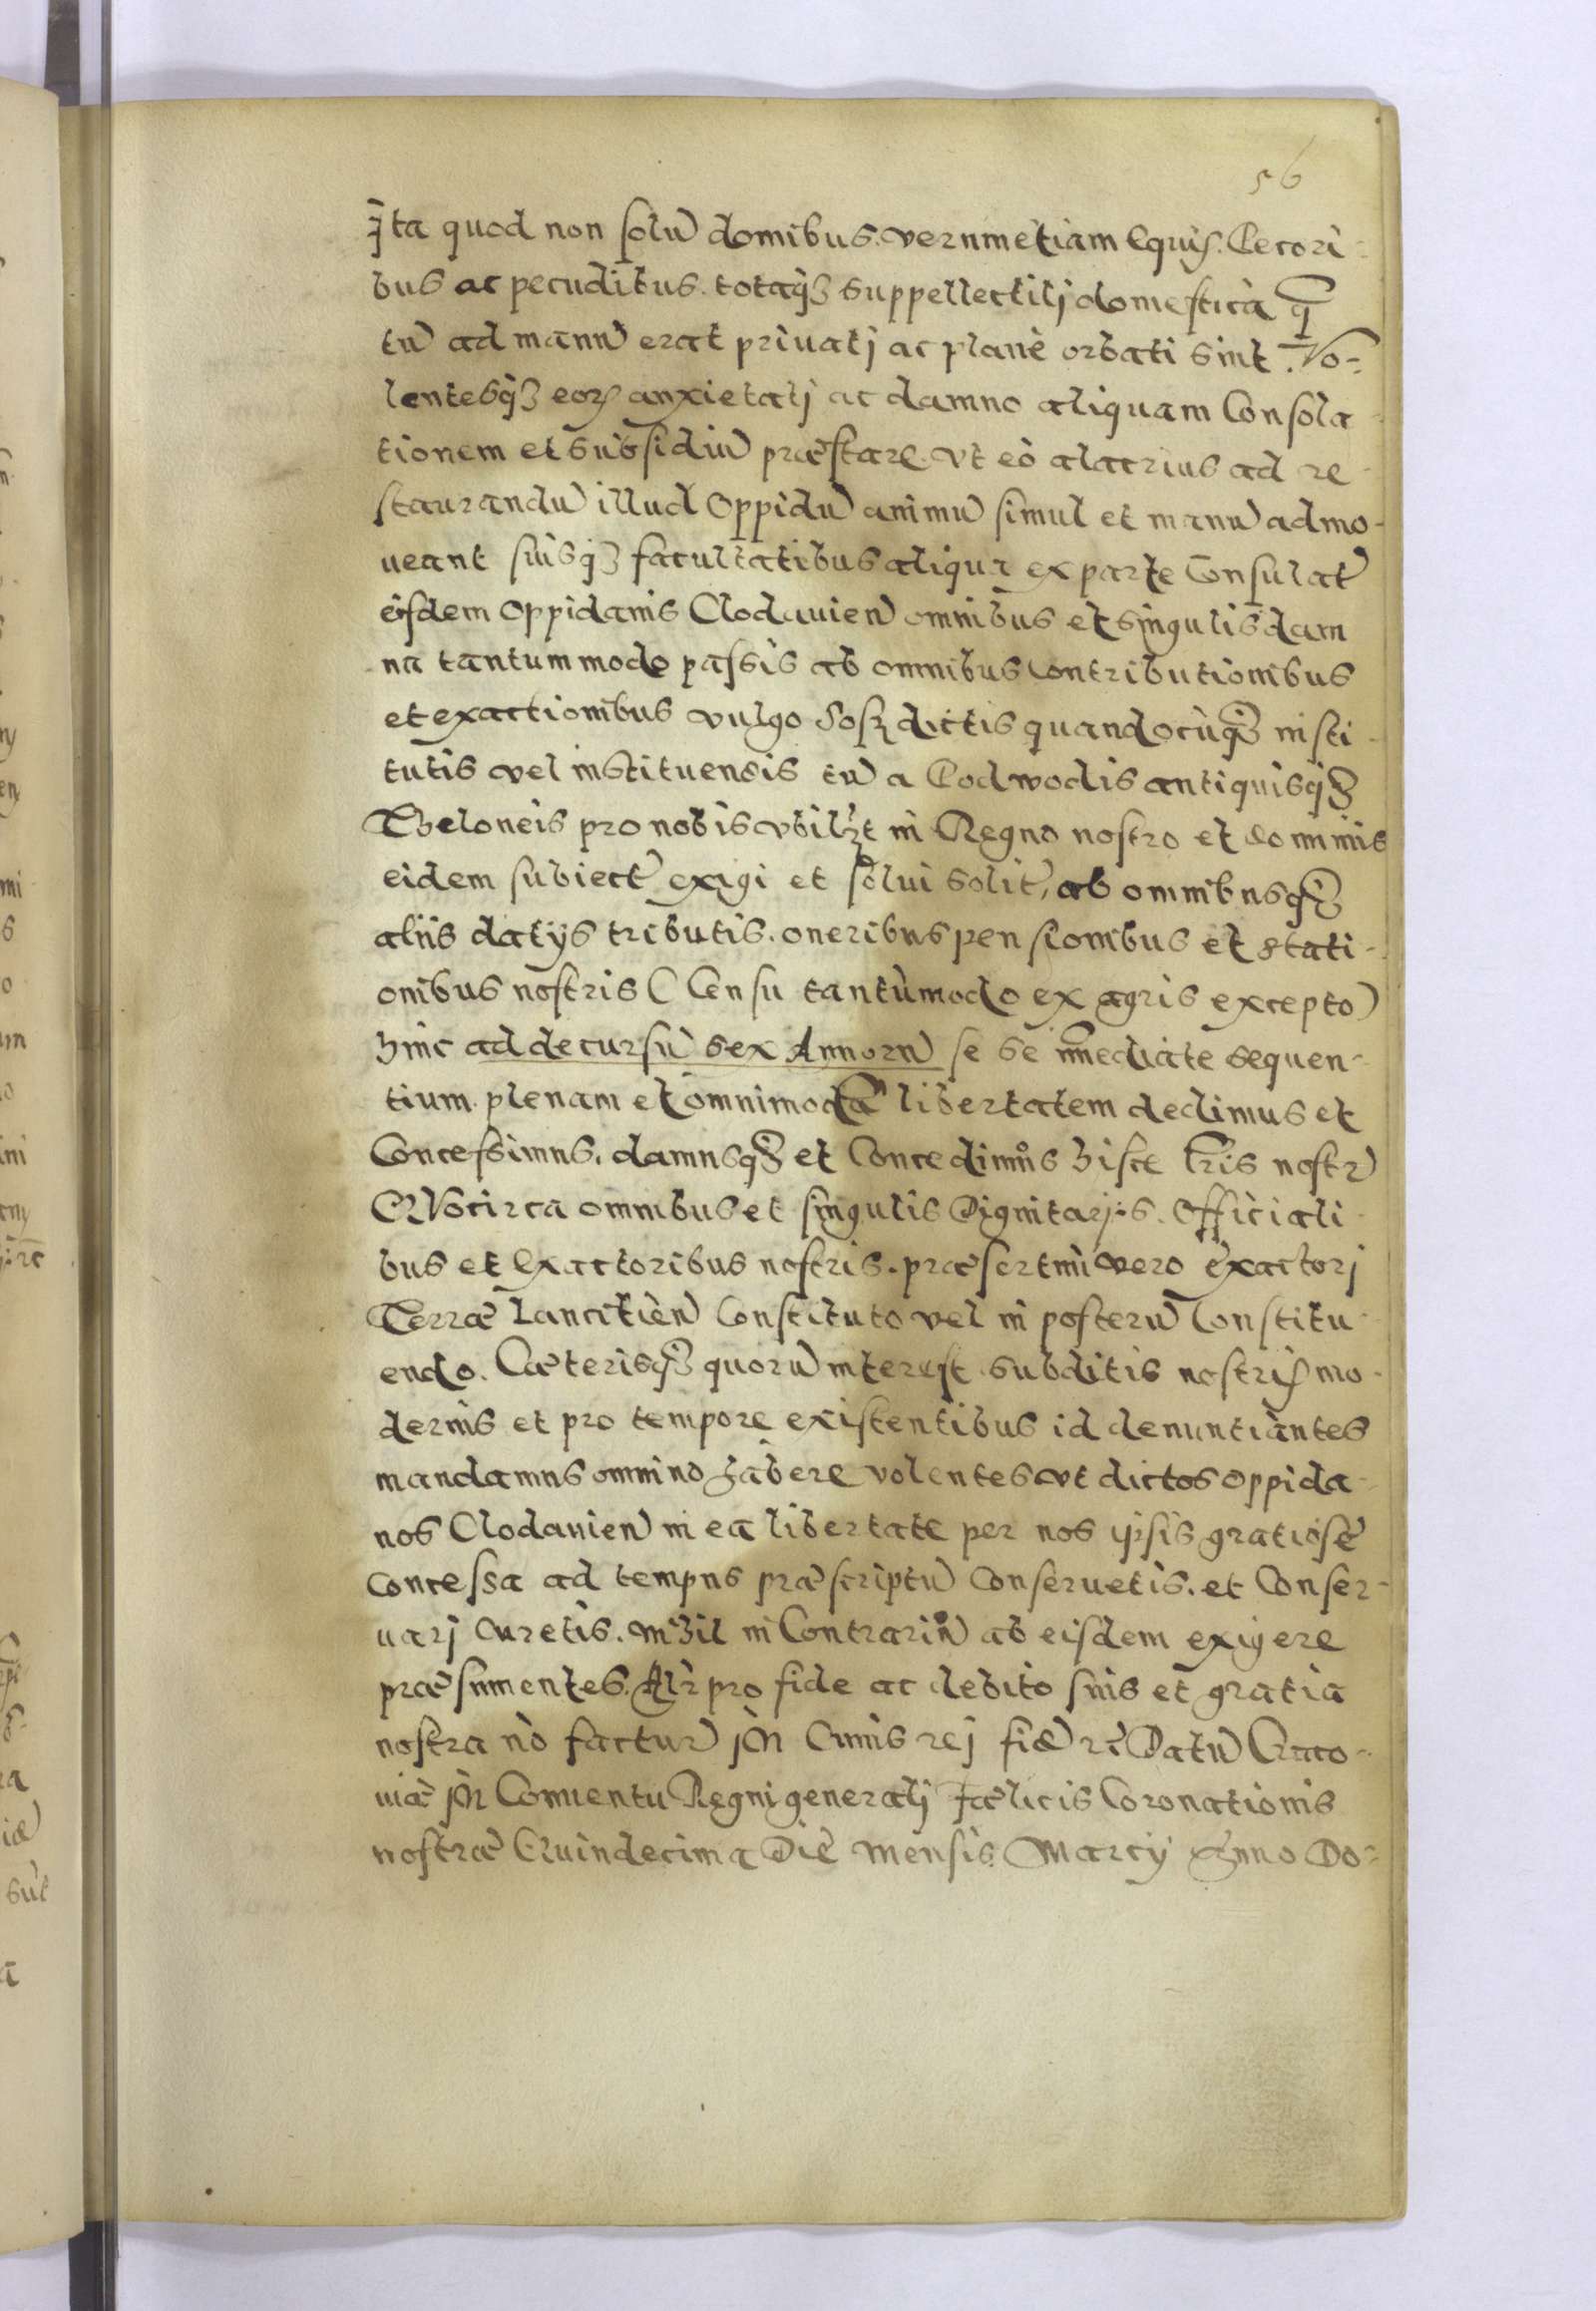 56
Jta quod non solū domibus. verumetiam Equis. Pecori-
bus ac pecudibus. totaq₃ suppellectilj domestica q̄
tū ad manū erat priuatj ac planè orbati sint. Vo-
lentesq₃ eoꝝ anxietatj ac damno aliquam Consola-
tionem et subsidiū præstare. vt eò alacrius ad re-
staurandū illud Oppidū animū simul et manū admo-
ueant suisq₃ facultatibus aliqua ex parte Consulat
eisdem Oppidanis Clodauien̄ omnibus et singulis dam
na tantummodo passis ab omnibus Contributionibus
et exactionibus vulgo Sosz dictis quandocūq₃ insti-
tutis vel instituensis tū a Podwodis antiquisq₃
Theloneis pro nobis vbilꝫt in Regno nostro et dominiis
eidem subiect̄ exigi et solui solit̄, ab omnibusq₃
aliis datijs tributis. oneribus pensionibus et stati-
onibus nostris (Censu tantùmodo ex agris excepto)
hinc ad decursū sex Annorū se se īmediate sequen-
tium. plenam et omnimodā libertatem dedimus et
Concessimus. damusq₃ et Concedimus hisce lr̄is nostr̄
QVocirca omnibus et singulis Dignitarijs. Officiali
bus et Exactoribus nostris. præsertim vero exactorj
Terræ Lancitien̄ Constituto vel in posterū Constitu-
endo. Cæterisq₃ quorū interest subditis nostris mo-
dernis et pro tempore existentibus id denuntiantes
mandamus omnino habere volentes vt dictos oppida-
nos Clodauien̄ in ea libertate per nos ipsis gratiosè
concessa ad tempus præscriptū Conseruetis. et Conser-
uarj curetis. nihil in Contrariū ab eisdem exigere
præsumentes. Alr̄ pro fide ac debito suis et gratia
nostra nò factur̄ JN Cuius rej fidē rc̄ Datū Craco-
uiæ JN Conuentu Regni generalj Fælicis Coronationis
nostræ Quindecima Die mensis Marcij Anno Do-